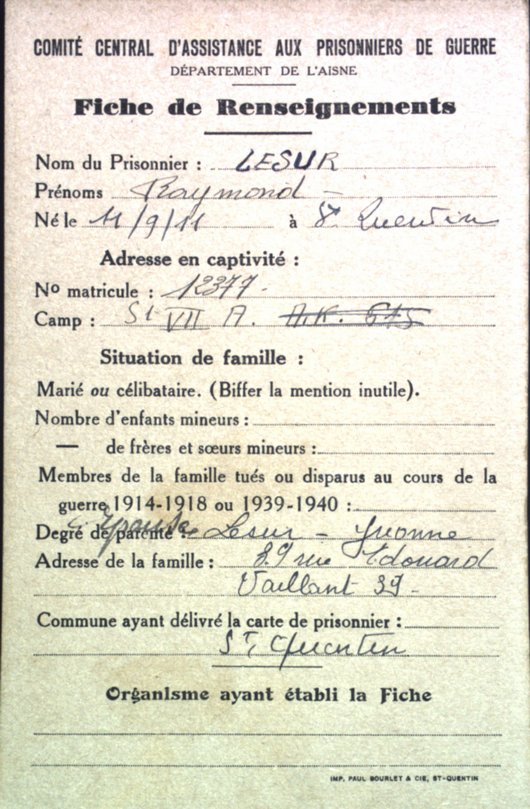 COMITÉ CENTRAL D'ASSISTANCE AUX PRISONNIERS DE GUERRE
DÉPARTEMENT DE L'AISNE
Fiche de Renseignements
Nom du Prisonnier : LESUR
Prénoms Raymond
Né le 11/9/11 à St Quentin
Adresse en captivité :
No matricule : 12377
Camp : St VII A. A.K. 615
Situation de famille :
Marié ou célibataire. (Biffer la mention inutile).
Nombre d'enfants mineurs :
— de frères et sœurs mineurs :
Membres de la famille tués ou disparus au cours de la
guerre 1914-1918 ou 1939-1940 :
Degré de parenté Epouse Lesur - Yvonne
Adresse de la famille : 39 rue Edouard
Vaillant 39 -
Commune ayant délivré la carte de prisonnier :
St Quentin
Organisme ayant établi la Fiche
IMP. PAUL BOURLET & CIE, ST-QUENTIN